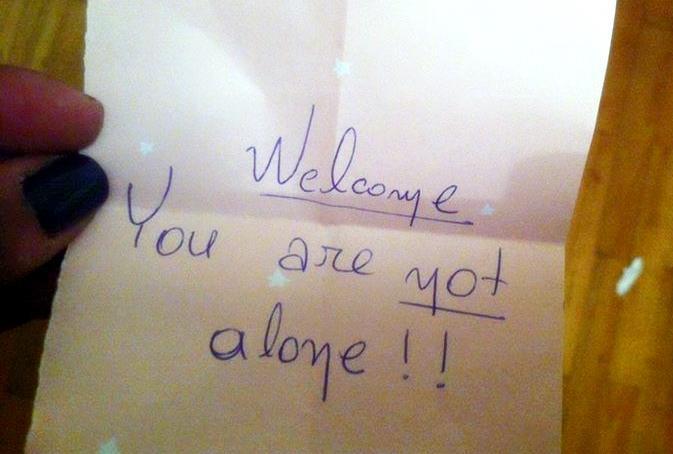 Welcome
You are not
alone!!